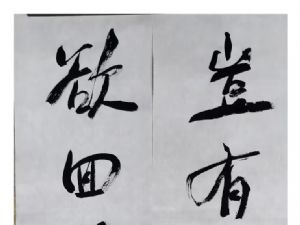 豈有
欲回